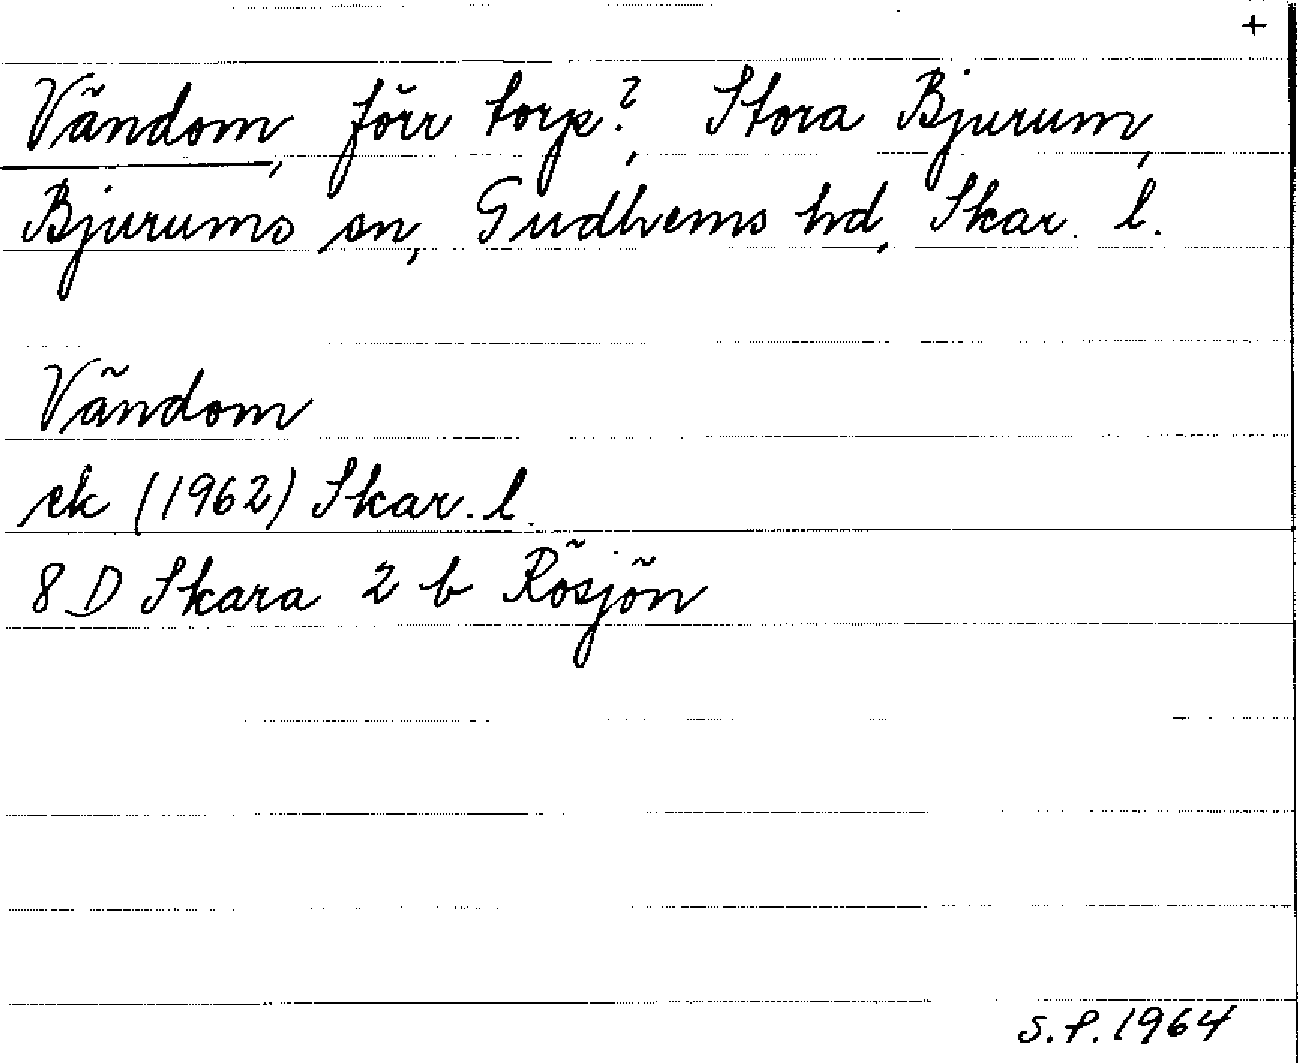 +
Vändom, förr torp?, Stora Bjurum,
Bjurums sn, Gudhems hd, Skar. l.
Vändom
ek (1962) Skar. l.
8 D Skara 2 b Rösjön
S.F. 1964